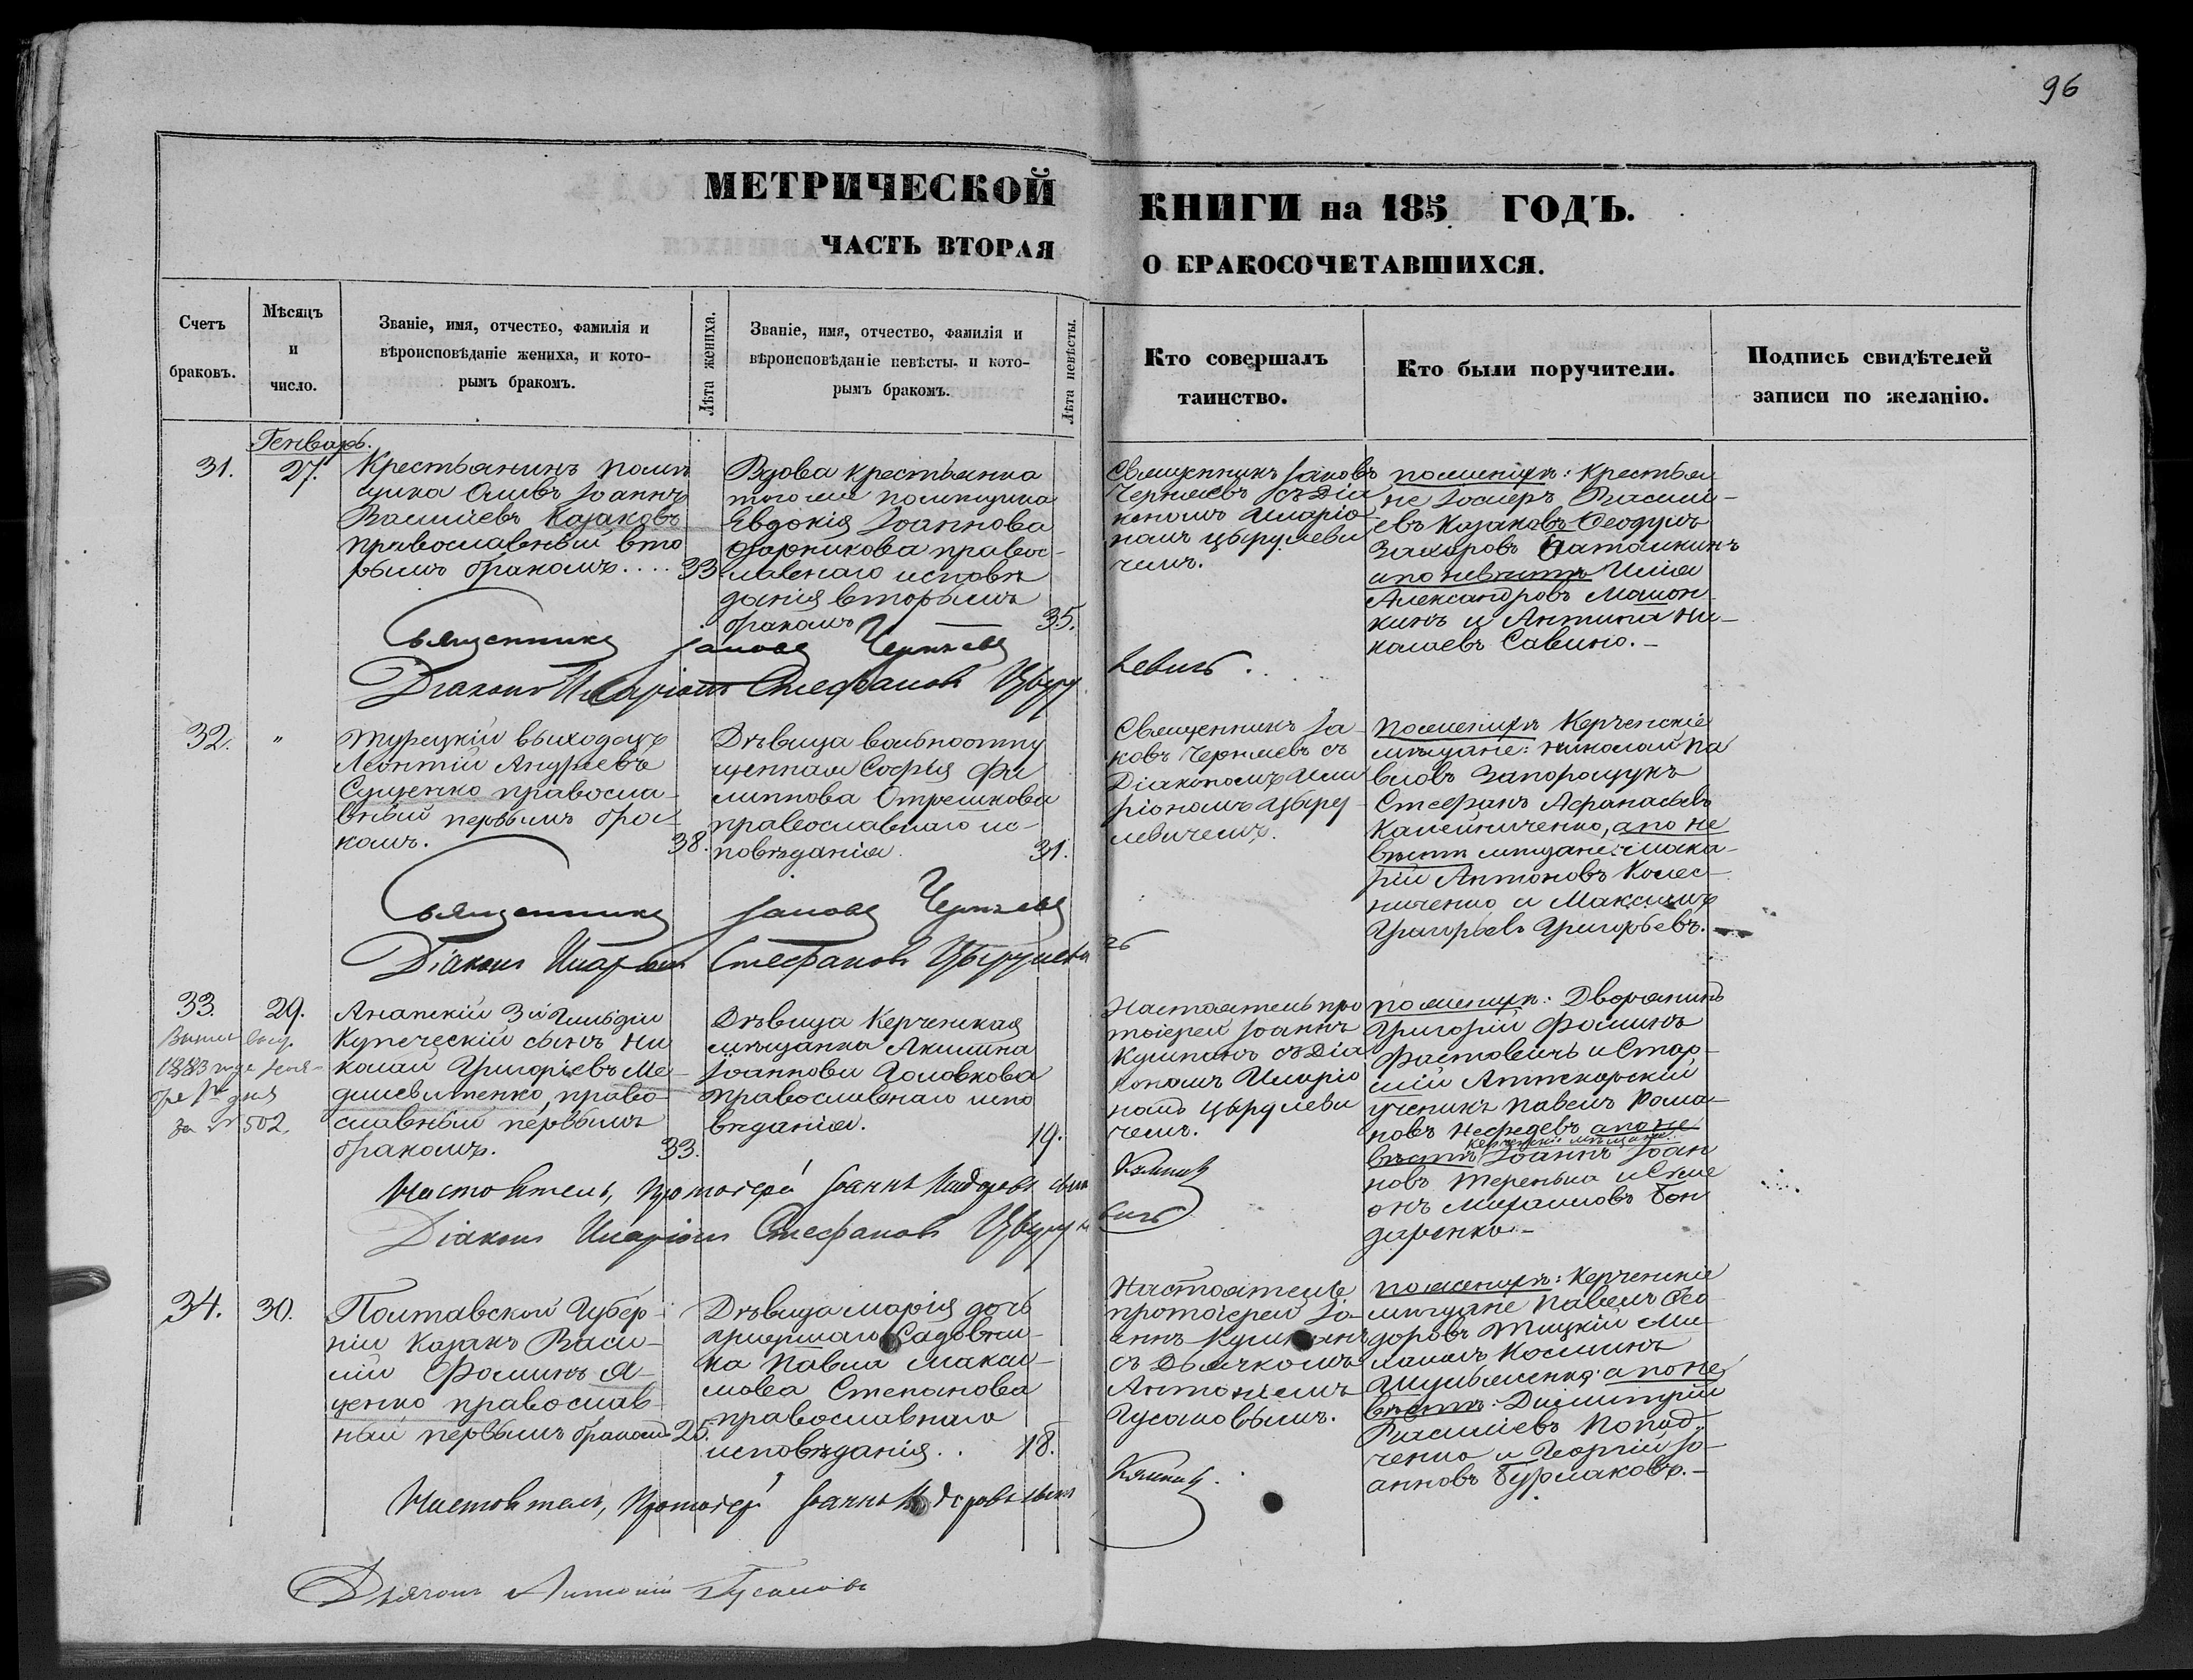 96
МЕТРИЧЕСКОЙ КНИГИ на 185 ГОДЪ.
ЧАСТЬ ВТОРАЯ О БРАКОСОЧЕТАВШИХСЯ.
Счетъ браковъ.
Мѣсяцъ и число.
Званіе, имя, отчество, фамилія и
вѣроисповѣданіе жениха, и кото-
рымъ бракомъ.
Лѣта жениха.
Званіе, имя, отчество, фамилія и
вѣроисповѣданіе невѣсты, и кото-
рымъ бракомъ.
Лѣта невѣсты.
Кто совершалъ
таинство.
Кто были поручители.
Подпись свидѣтелей
записи по желанію.
Генварь.
31.
27.
Крестьянинъ помѣ
щика Іоаннъ
Василіевъ Казаковъ
православный вто
рымъ бракомъ....
33
Вдова крестьянка
того же помѣщика
Евдокія Іоаннова
правос-
лавнаго исповѣ
данія вторымъ
бракомъ
35.
Священникъ Іаковъ
Черняевъ съ Діа
кономъ Иларіо
номъ Цырулеви
чемъ.
по женихѣ: крестья
не Василі-
евъ Казаковъ
Захаровъ
а по невѣстѣ Илія
Александровъ
кинъ и Ни-
колаевъ Савинъ.-
Священникъ Іаковъ Черняевъ
Діаконъ Иларіонъ Стефановъ Цыру
левичъ.
32.
"
Турецкій выходецъ
Леонтій Андреевъ
Сущенко правосла-
вный первымъ бра-
комъ.
38.
Дѣвица вольноотпу
щенная Софія Фи
липпова Отрешкова
православнаго ис-
повѣданія.
31.
Священникъ Іа-
ковъ Черняевъ съ
Діакономъ Ила
ріономъ Цыру-
левичемъ.
по женихѣ Керченскіе
мѣщане: Николай Па
вловъ Запорощукъ
Стефанъ Афанасьевъ
а по не
вѣстѣ мѣщане: Мака-
рій Антоновъ Колес-
ниченко и Максимъ
Григорьевъ Григорьевъ.-
Священникъ Іаковъ Черняевъ
Діаконъ Иларіонъ Стефановъ Цырулеви
чъ
33.
29.
1883 года
1го дня
за № 502.
Анапскій 3й гильдіи
Купеческій сынъ Ни
колай Григоріевъ Ме-
право-
славный первымъ
бракомъ.
33.
Дѣвица Керченская
мѣщанка Акилина
Іоаннова Головкова
православнаго испо
вѣданія.
19.
Настоятель про
тоіерей Іоаннъ
съ Діа
кономъ Иларіо
номъ Цырулеви
чемъ.
по женихѣ: Дворянинъ
Григорій Фоминъ
и Стар-
шій Аптекарскій
ученикъ Павелъ Рома-
новъ Нефедевъ а по не
керченскіе мѣщане:
вѣстѣ Іоаннъ Іоан
новъ и Симе
онъ Михаиловъ Бон
даренко.-
Настоятель, Протоіерей Іоаннъ
Діаконъ Иларіонъ Стефановъ Цыруле
вичъ
34.
30.
Полтавской Губер-
ніи казакъ Васи-
лій Фоминъ Я-
ценко православ
ный первымъ бракомъ
25.
Дѣвица Марія дочь
умершаго Садовни-
ка Павла Макси-
мова Степанова
православнаго
исповѣданія..
18.
Настоятель
протоіерей Іо-
аннъ
съ Дьячкомъ
Антоніемъ
Гусаковымъ.
по женихѣ: Керченскіе
мѣщане Павелъ Ѳео
доровъ Ми-
Косминъ
а по не
вѣстѣ: Димитрій
Василіевъ
и Георгій Іо-
анновъ Бурлаковъ.-
Настоятель, Протоіерей Іоаннъ
Дьячокъ Антоній Гусаковъ